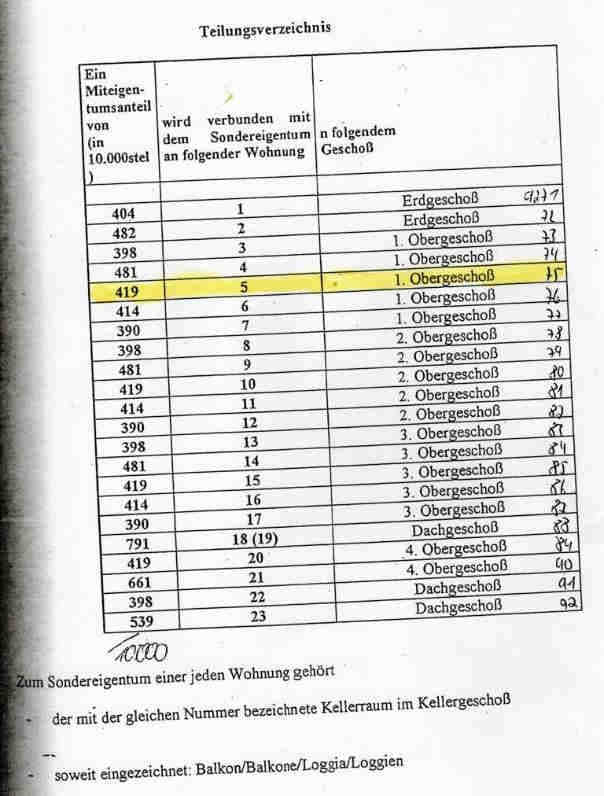 Teilungsverzeichnis
Ein
Miteigen-
tumsanteil
von
(in
10.000stel
)
wird verbunden mit
dem Sondereigentum
an folgender Wohnung
n folgendem
Geschoß
404 1 Erdgeschoß
482 2 Erdgeschoß 72
398 3 1. Obergeschoß 73
481 4 1. Obergeschoß 74
419 5 1. Obergeschoß 75
414 6 1. Obergeschoß 76
390 7 1. Obergeschoß 77
398 8 2. Obergeschoß 78
481 9 2. Obergeschoß 79
419 10 2. Obergeschoß 80
414 11 2. Obergeschoß 81
390 12 2. Obergeschoß 82
398 13 3. Obergeschoß 83
481 14 3. Obergeschoß 84
419 15 3. Obergeschoß 85
414 16 3. Obergeschoß 86
390 17 3. Obergeschoß 87
791 18 (19) Dachgeschoß 88
419 20 4. Obergeschoß 89
661 21 4. Obergeschoß 90
398 22 Dachgeschoß 91
539 23 Dachgeschoß 92
10000
Zum Sondereigentum einer jeden Wohnung gehört
- der mit der gleichen Nummer bezeichnete Kellerraum im Kellergeschoß
- soweit eingezeichnet: Balkon/Balkone/Loggia/Loggien